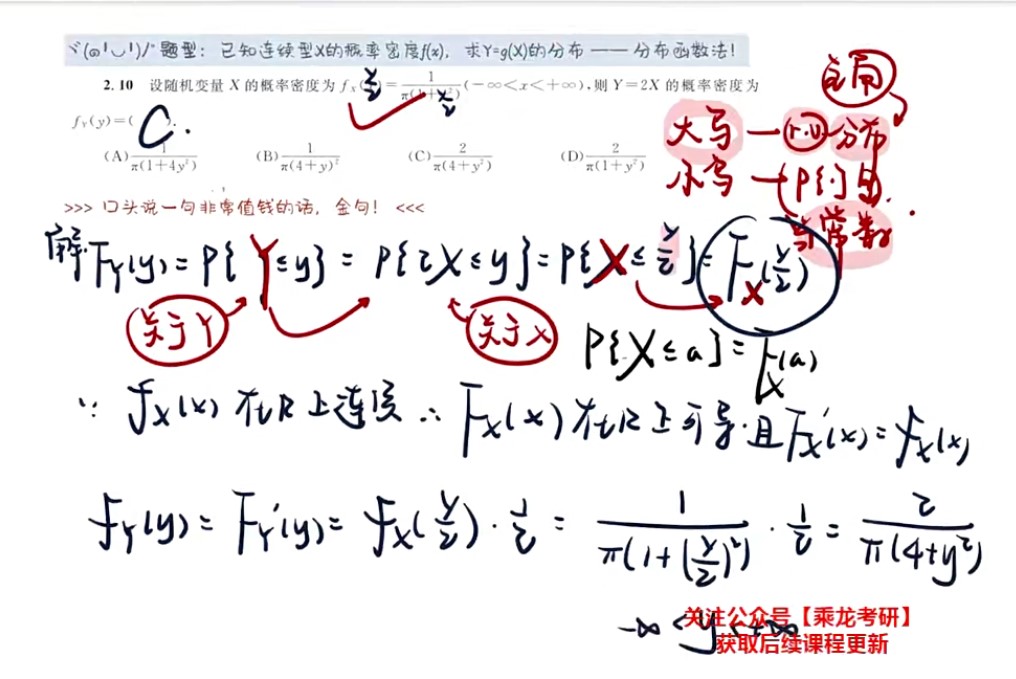 ヾ(๑╹◡╹)ﾉ" 题型：已知连续型X的概率密度f(x)，求Y=g(X)的分布 —— 分布函数法！
2.10 设随机变量 X 的概率密度为 f_X(y/2)=1/π(1+x²) (-∞<x<+∞),则 Y=2X 的概率密度为
f_Y(y)=( C. ).
(A) 1/π(1+4y²) (B) 1/π(4+y)² (C) 2/π(4+y²) (D) 2/π(1+y²)
>>> 口头说一句非常值钱的话，金句！ <<<
大写 — r.v. 分布
小写 — P{·}
当常数
解: F_Y(y) = P{Y≤y} = P{2X≤y} = P{X≤y/2} = F_X(y/2)
关于Y 关于X P{X≤a} = F_X(a)
∵ f_X(x) 在R上连续 ∴ F_X(x) 在R上可导.且 F_X'(x) = f_X(x)
f_Y(y) = F_Y'(y) = f_X(y/2) · 1/2 = 1/π(1+(y/2)²) · 1/2 = 2/π(4+y²)
-∞<y<+∞
关注公众号【乘龙考研】
获取后续课程更新